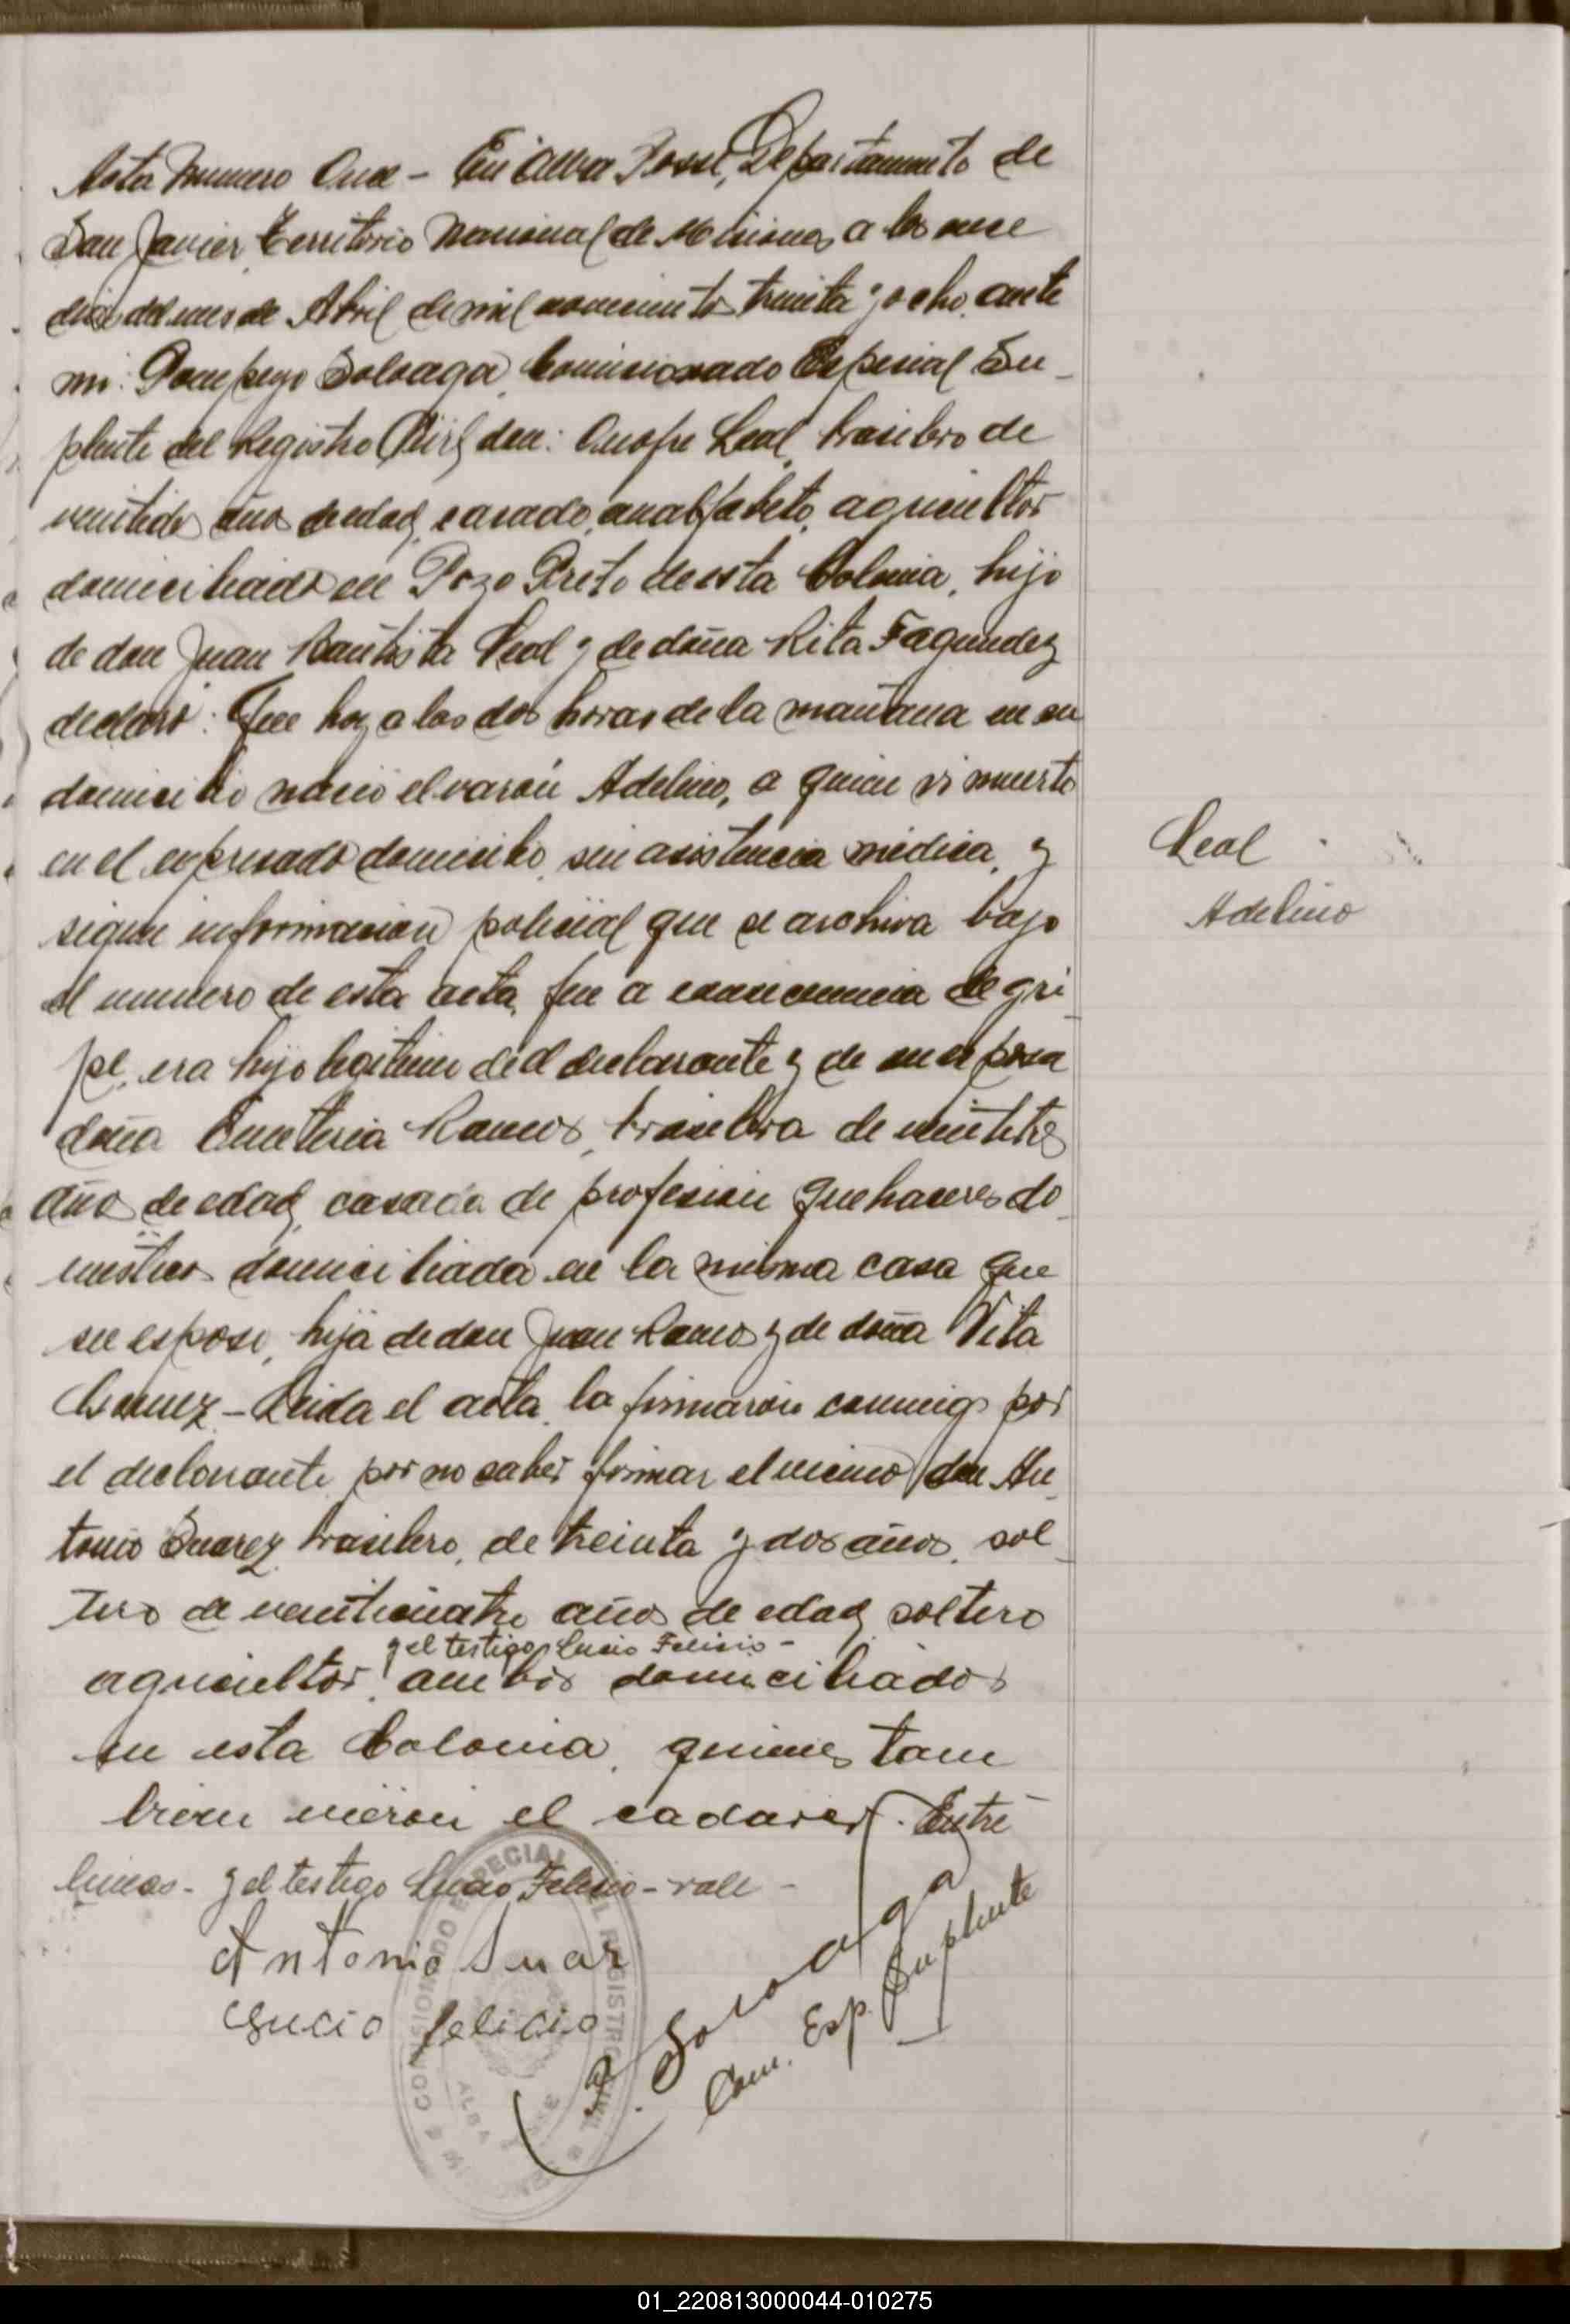 Acta Numero Once - En Alba Posse, Departamento de
San Javier, Territorio Nacional de Misiones a los once
dias del mes de Abril de mil novecientos treinta y ocho, ante
mi: Pompeyo Soloaga, Comisionado Especial Su-
plente del Registro Civil, don: Onofre Leal, brasilero de
veintidos años de edad, casado, analfabeto, agricultor
domiciliado en Pozo Preto de esta Colonia, hijo
de don Juan Bautista Leal y de doña Rita Fagundez
declaró: Que hoy a las dos horas de la mañana en su
domicilio nació el varón Adelino, a quien vi muerto
en el expresado domicilio, sin asistencia médica, y
segun informacion policial que se archiva bajo
el numero de esta acta, fue a consecuencia de gri-
pe, era hijo legitimo del declarante y de su esposa
doña Emeteria Ramos, brasilera de veintitres
años de edad, casada de profesion quehaceres do-
mesticos domiciliada en la misma casa que
su esposo, hija de don Juan Ramos y de doña Vita
Leida el acta, la firmaron conmigo por
el declarante por no saber firmar el vecino don An-
tonio Suarez, brasilero, de treinta y dos años, sol-
tero de veinticuatro años de edad, soltero
y el testigo Lucio Felicio -
agricultor, ambos domiciliados
en esta Colonia, quienes tam
bien vieron el cadaver. Entre
lineas - y el testigo Lucio Felicio - vale -
Antonio Suar
Lucio felicio
P. Soloaga
Com. Esp. Suplente
COMISIONADO ESPECIAL DEL REGISTRO CIVIL
ALBA POSSE
Leal
Adelino
01_220813000044-010275